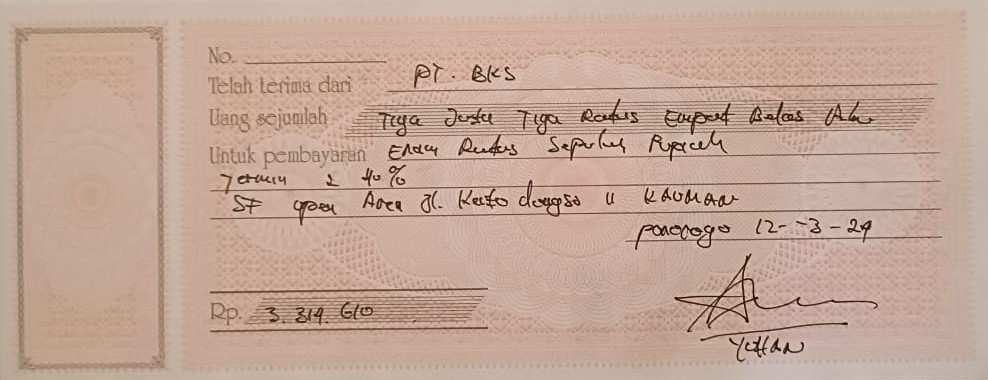 No.
Telah terima dari PT. BKS
Uang sejumlah Tiga Juta Tiga Ratus Empat Belas
Untuk pembayaran Enam Ratus Sepuluh Rupiah
Termin 2 40%
SF open Area Jl. KAUMAN
ponorogo 12--3-24
Rp. 3.314.610
YUHAN